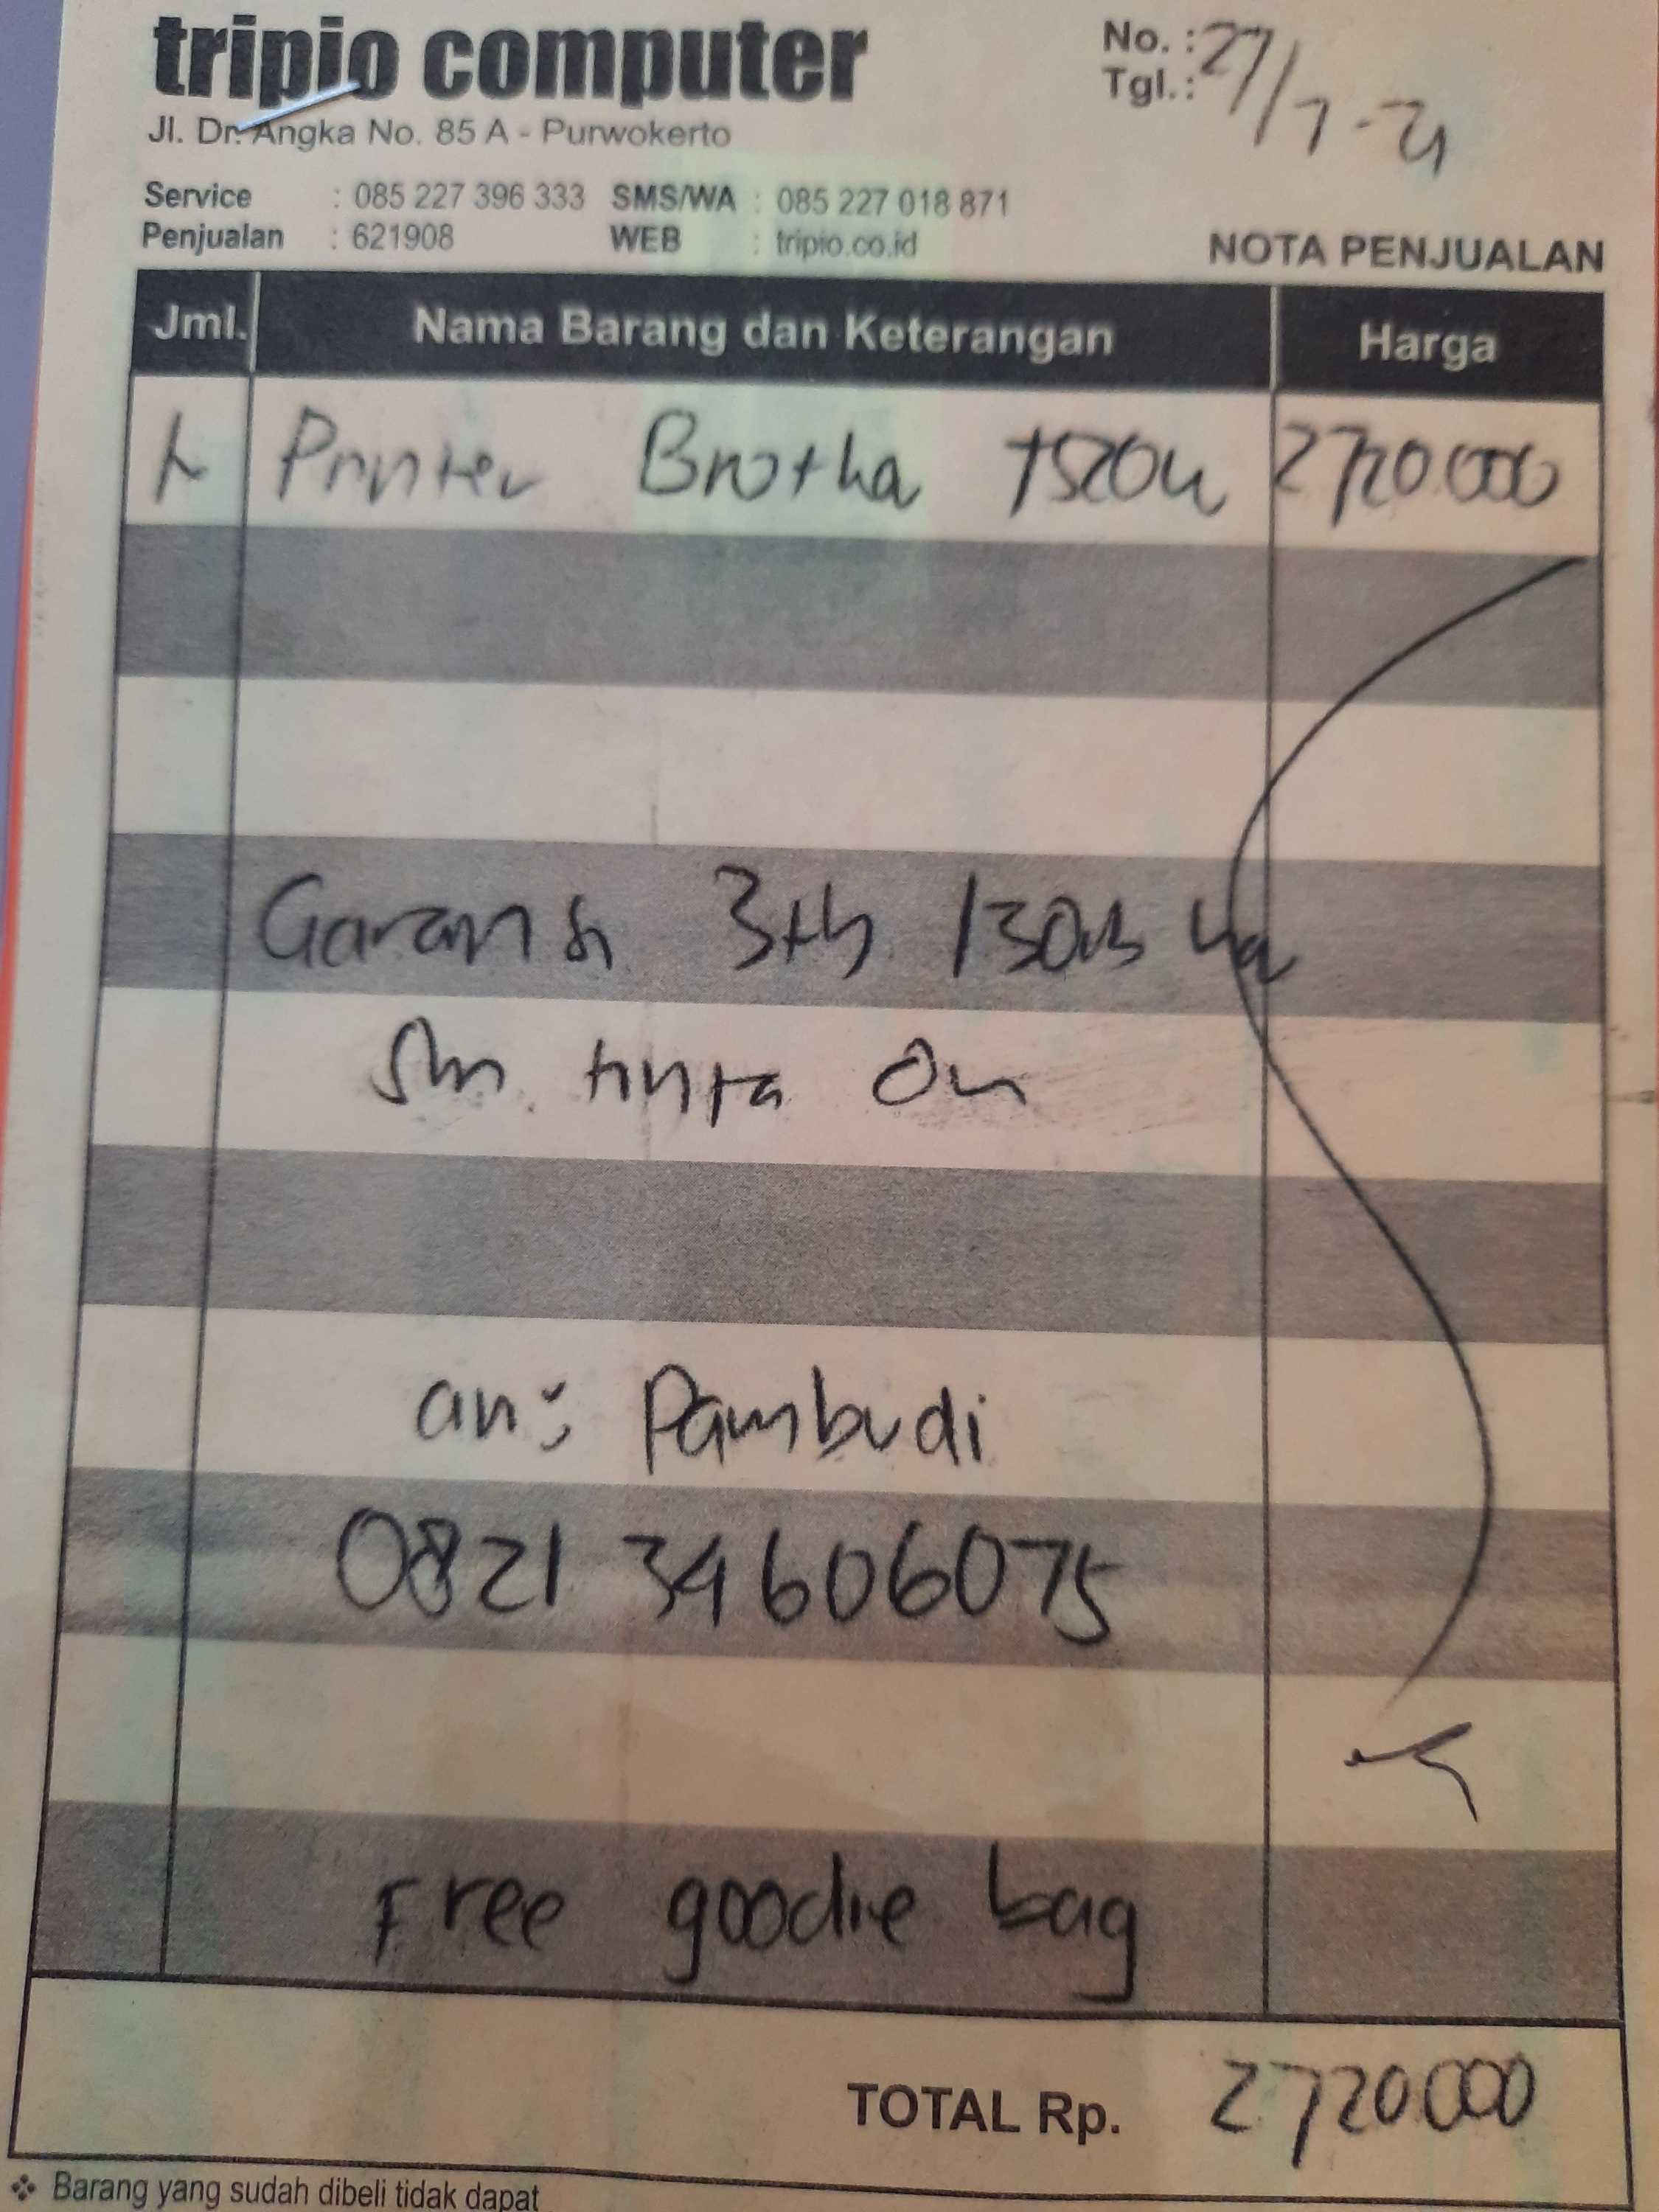 tripio computer
No. :
Tgl. : 27/7-21
Jl. Dr. Angka No. 85 A - Purwokerto
Service : 085 227 396 333 SMS/WA : 085 227 018 871
Penjualan : 621908 WEB : tripio.co.id
NOTA PENJUALAN
Jml. Nama Barang dan Keterangan Harga
1 Printer Brotha T520W 2720.000
Garansi 3th
tinta On
an: Pambudi
0821 34606075
Free goodie bag
TOTAL Rp. 2720.000
❖ Barang yang sudah dibeli tidak dapat